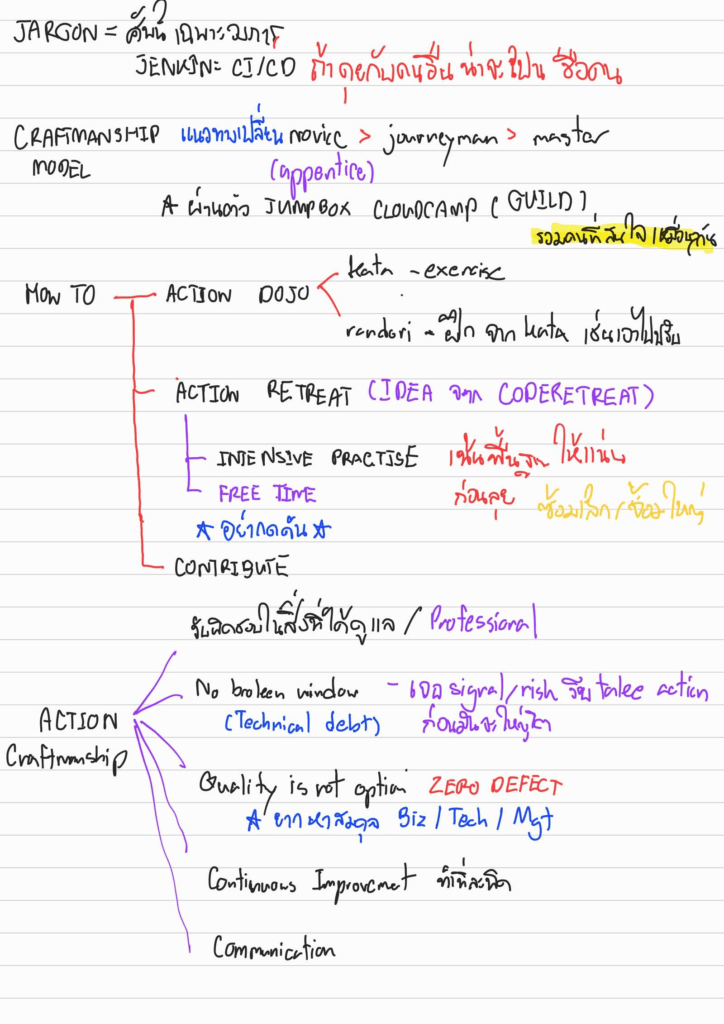 JARGON = ศัพท์เฉพาะวงการ
JENKIN = CI/CD ถ้าคุยกับคนอื่น น่าจะเป็น ชื่อคน
CRAFTMANSHIP MODEL แนวทางเปลี่ยน novice > journeyman > master
(appentice)
☆ ผ่านตัว JUMPBOX CLOUDCAMP (GUILD)
รวมคนที่สนใจเหมือนกัน
HOW TO — ACTION DOJO
kata - exercise
randori - ฝึก จาก kata เช่นเอาไปปรับ
ACTION RETREAT (IDEA จาก CODERETREAT)
INTENSIVE PRACTISE เน้นพื้นฐาน ให้แน่น
FREE TIME ก่อนลุย ซ้อมเล็ก / ซ้อมใหญ่
☆ อย่ากดดัน ☆
CONTRIBUTE
รับผิดชอบในสิ่งที่ได้ดูแล / Professional
No broken window - เจอ signal/risk รีบ take action
(Technical debt) ก่อนมันจะใหญ่โต
ACTION
Craftmanship
Quality is not option ZERO DEFECT
☆ ยาก หาสมดุล Biz / Tech / Mgt
Continuous Improvemet ทำทีละนิด
Communication